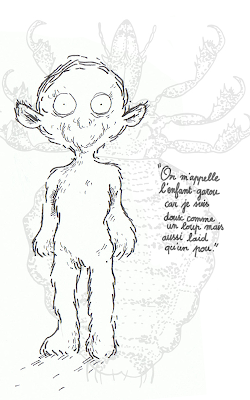 "On m'appelle
l'enfant-garou
car je suis
doux comme
un loup mais
aussi laid
qu'un pou."